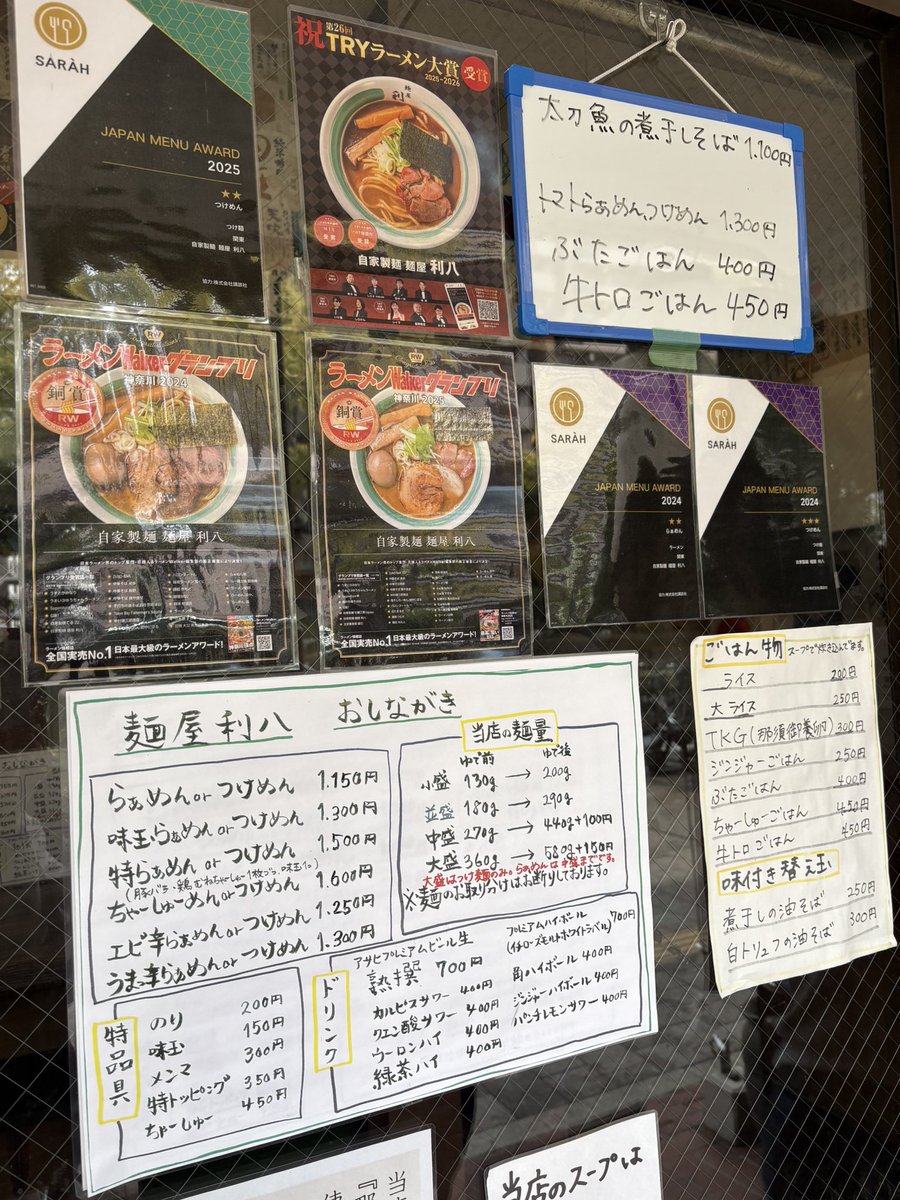 SARAH
JAPAN MENU AWARD
2025
★★
つけめん
つけ麺
関東
自家製麺 麺屋 利八
協力:株式会社講談社
祝 第26回
TRYラーメン大賞 受賞
2025-2026
麺屋 利八
自家製麺 麺屋 利八
太刀魚の煮干しそば 1.100円
トマトらぁめん、つけめん 1.300円
ぶたごはん 400円
牛トロごはん 450円
RW
ラーメンWalkerグランプリ
神奈川 2024
銅賞
RW
自家製麺 麺屋 利八
全国実売No.1 日本最大級のラーメンアワード!
RW
ラーメンWalkerグランプリ
神奈川 2025
銅賞
RW
自家製麺 麺屋 利八
全国実売No.1 日本最大級のラーメンアワード!
SARAH
JAPAN MENU AWARD
2024
★★
らぁめん
ラーメン
関東
自家製麺 麺屋 利八
協力:株式会社講談社
SARAH
JAPAN MENU AWARD
2024
★★★
つけめん
つけ麺
関東
自家製麺 麺屋 利八
協力:株式会社講談社
麺屋 利八 おしながき
らぁめん or つけめん 1.150円
味玉らぁめん or つけめん 1.300円
特らぁめん or つけめん 1.500円
(豚バラ・鶏むねちゃーしゅー1枚づつ、味玉1コ)
ちゃーしゅーめん or つけめん 1.600円
エビ辛らぁめん or つけめん 1.250円
うま辛らぁめん or つけめん 1.300円
当店の麺量
ゆで前 ゆで後
小盛 130g → 200g
並盛 180g → 290g
中盛 270g → 440g+100円
大盛 360g → 580g+150円
大盛はつけ麺のみ。らぁめんは中盛までです。
※麺のお取り分けはお断りしております。
特品具
のり 200円
味玉 150円
メンマ 300円
特トッピング 350円
ちゃーしゅー 450円
ドリンク
アサヒプレミアムビール生
熟撰 700円
カルピスサワー 400円
クエン酸サワー 400円
ウーロンハイ 400円
緑茶ハイ 400円
プレミアムハイボール 700円
(イチローズモルトホワイトラベル)
角ハイボール 400円
ジンジャーハイボール 400円
パンチレモンサワー 400円
ごはん物 スープで炊き込んでます。
ライス 200円
大ライス 250円
TKG(那須御養卵) 300円
ジンジャーごはん 250円
ぶたごはん 400円
ちゃーしゅーごはん 450円
牛トロごはん 450円
味付き替え玉
煮干しの油そば 250円
白トリュフの油そば 300円
当店のスープは